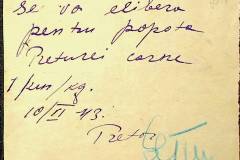 Se va elibera
pentru popota
Preturei carne
1 kg.
10/II 43.
Pretor